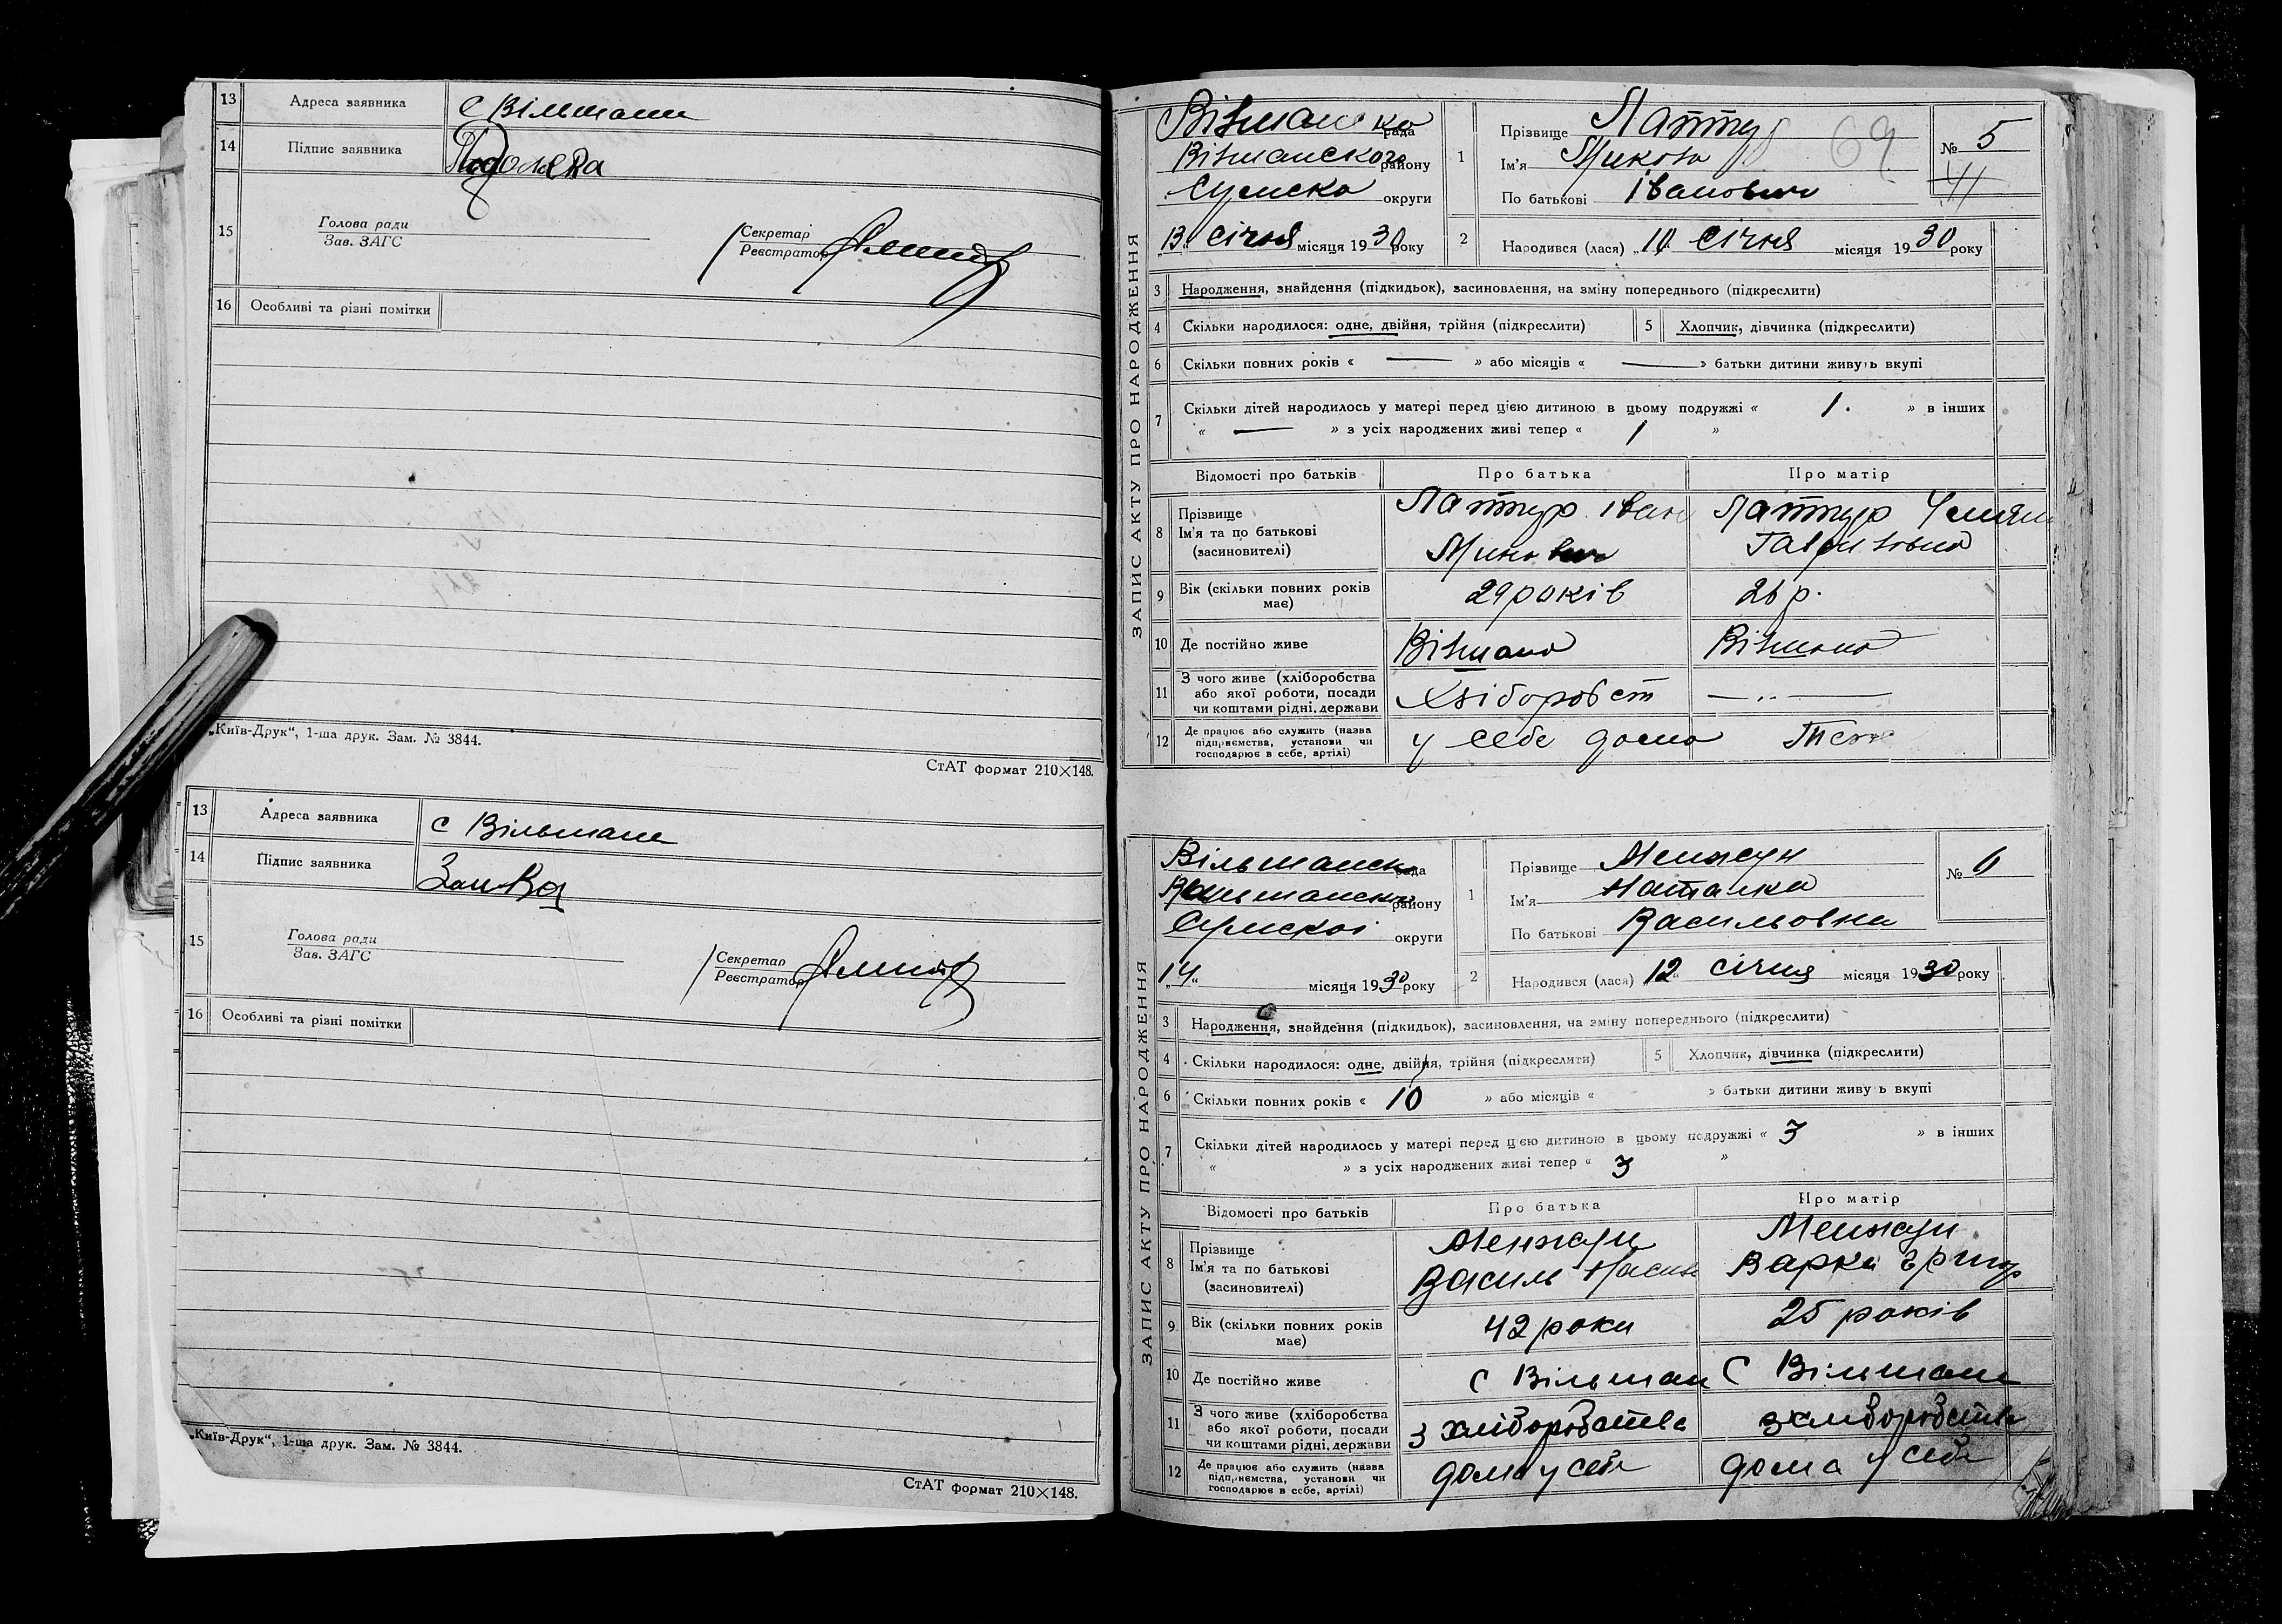 13 Адреса заявника с Вільшани
14 Підпис заявника
15 Голова ради
Зав. ЗАГС
Секретар
Реєстратор
16 Особливі та різні помітки
„Київ-Друк“, 1-ша друк. Зам. № 3844.
СтАТ формат 210×148.
13 Адреса заявника с Вільшани
14 Підпис заявника Заика
15 Голова ради
Зав. ЗАГС
Секретар
Реєстратор
16 Особливі та різні помітки
„Київ-Друк“, 1-ша друк. Зам. № 3844.
СтАТ формат 210×148.
ЗАПИС АКТУ ПРО НАРОДЖЕННЯ
Вільшанська рада
Вільшанского району
Сумска округи
„13“ січня місяця 1930 року
1 Прізвище Лаптур
Ім'я Микола
По батькові Іванович
69
№ 5
41
2 Народився (лася) „10“ січня місяця 1930 року
3 Народження, знайдення (підкидьок), засиновлення, на зміну попереднього (підкреслити)
4 Скільки народилося: одне, двійня, трійня (підкреслити)
5 Хлопчик, дівчинка (підкреслити)
6 Скільки повних років « — » або місяців « — » батьки дитини живуть вкупі
7 Скільки дітей народилось у матері перед цією дитиною в цьому подружжі « 1. » в інших
« — » з усіх народжених живі тепер « 1 »
Відомості про батьків Про батька Про матір
8 Прізвище
Ім'я та по батькові
(засиновителі)
Лаптур Іван
Лаптур
Гавриловна
9 Вік (скільки повних років має) 29 років 26 р.
10 Де постійно живе Вільшана Вільшана
11 З чого живе (хліборобства або якої роботи, посади чи коштами рідні, держави Хліборобст — „ —
12 Де працює або служить (назва підприємства, установи чи господарює в себе, артілі) у себе дома Теж
ЗАПИС АКТУ ПРО НАРОДЖЕННЯ
Вільшанська рада
Вільшанської району
Сумскоі округи
„14“ місяця 1930 року
1 Прізвище Менжун
Ім'я Наталка
По батькові Васильовна
№ 6
2 Народився (лася) „12“ січня місяця 1930 року
3 Народження, знайдення (підкидьок), засиновлення, на зміну попереднього (підкреслити)
4 Скільки народилося: одне, двійня, трійня (підкреслити)
5 Хлопчик, дівчинка (підкреслити)
6 Скільки повних років « 10 » або місяців « » батьки дитини живуть вкупі
7 Скільки дітей народилось у матері перед цією дитиною в цьому подружжі « 3 » в інших
« » з усіх народжених живі тепер « 3 »
Відомості про батьків Про батька Про матір
8 Прізвище
Ім'я та по батькові
(засиновителі)
Менжун
Василь
Менжун
Варка Григор
9 Вік (скільки повних років має) 42 роки 25 років
10 Де постійно живе с Вільшан с Вільшани
11 З чого живе (хліборобства або якої роботи, посади чи коштами рідні, держави з хліборобства з хліборобства
12 Де працює або служить (назва підприємства, установи чи господарює в себе, артілі) дома у себе дома у себе